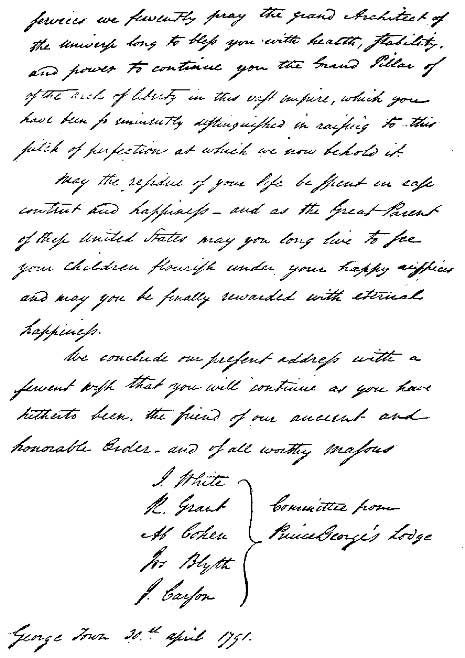 services we fervently pray the grand Architect of
the universe long to bless you with health, stability,
and power to continue you the Grand Pillar of
of the arch of liberty in this vast empire, which you
have been so eminently distinguished in raising to this
pitch of perfection at which we now behold it.
May the residue of your life be spent in ease
content and happiness – and as the Great Parent
of these United States may you long live to see
your children flourish under your happy auspices
and may you be finally rewarded with eternal
happiness.
We conclude our present address with a
fervent wish that you will continue as you have
hitherto been, the friend of our ancient and
honorable Order – and of all worthy masons
I. White
R. Grant
Ab Cohen
Jos Blyth
J. Carson
Committee from
Prince George's Lodge
George Town 30.th april 1791.